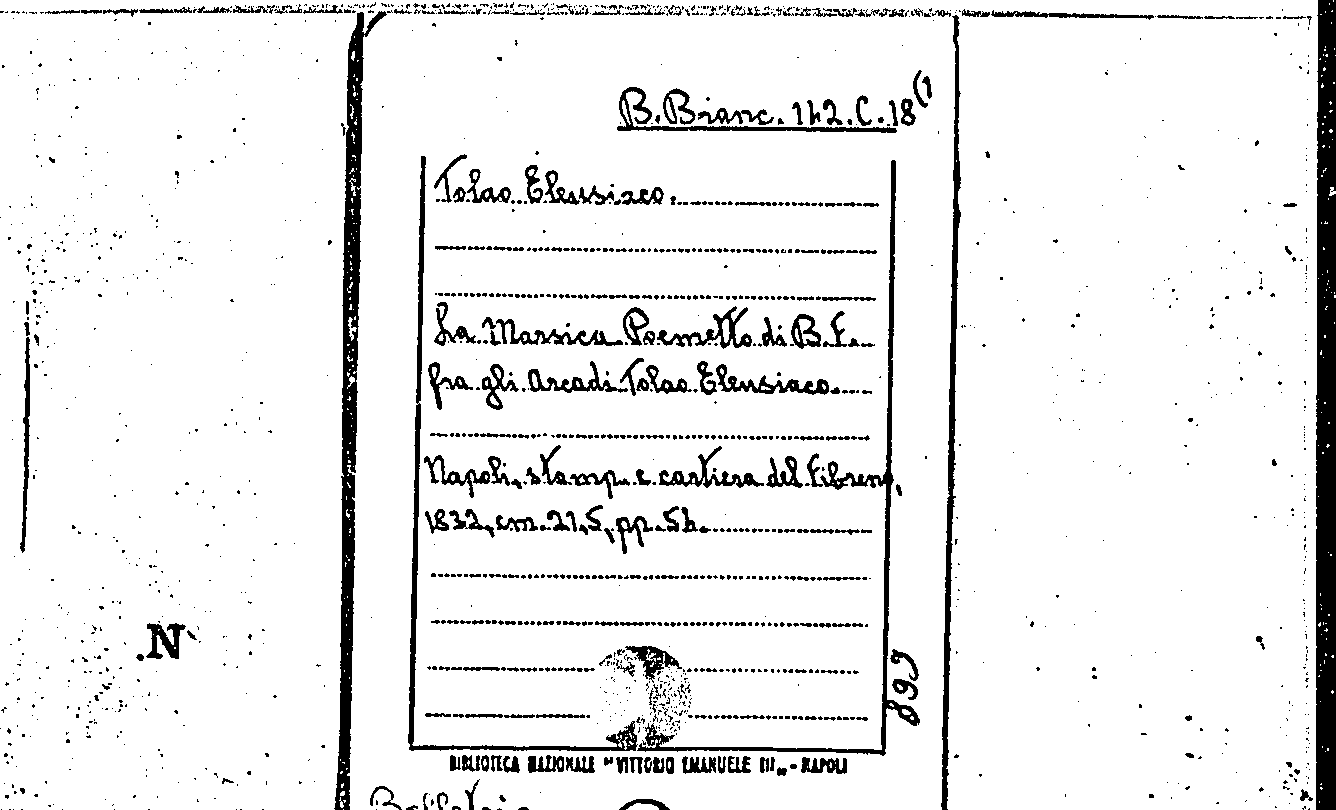 B. Bianc. 142. C. 18 (1
Tolao Eleusiaco.
La Marsica Poemetto di B. F.
fra gli Arcadi Tolao Eleusiaco.
Napoli, stamp. e cartiera del Fibreno,
1832, cm. 21,5, pp. 54.
BIBLIOTECA NAZIONALE "VITTORIO EMANUELE III„ - NAPOLI
.N